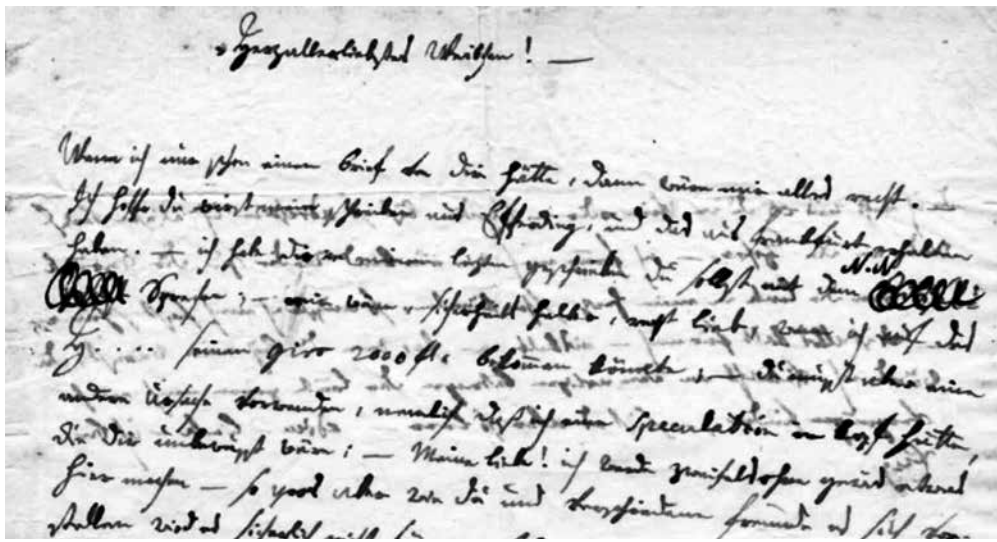 Herzallerliebstes Weibchen! —
Wenn ich nur schon einen brief von dir hätte, dann wäre mir alles recht. —
Ich hoffe du wirst mein schreiben aus Efferding, und das aus frankfurt erhalten
haben. — ich habe dir in meinem letzten geschrieben du sollst mit dem N. N.
Sprechen; — mir wäre, sicherheit halber, recht lieb, wenn ich auf des
H.... seinen giro 2000 fl: bekommen könnte; — du musst aber eine
andere Ursache vorwenden, nemlich daß ich eine Speculation im kopf hätte,
die dir unbewusst wäre; — Meine liebe! ich werde zweifelsohne gewis etwas
hier machen — so gros aber wie du und verschiedene freunde es sich vor-
stellen wird es sicherlich nicht